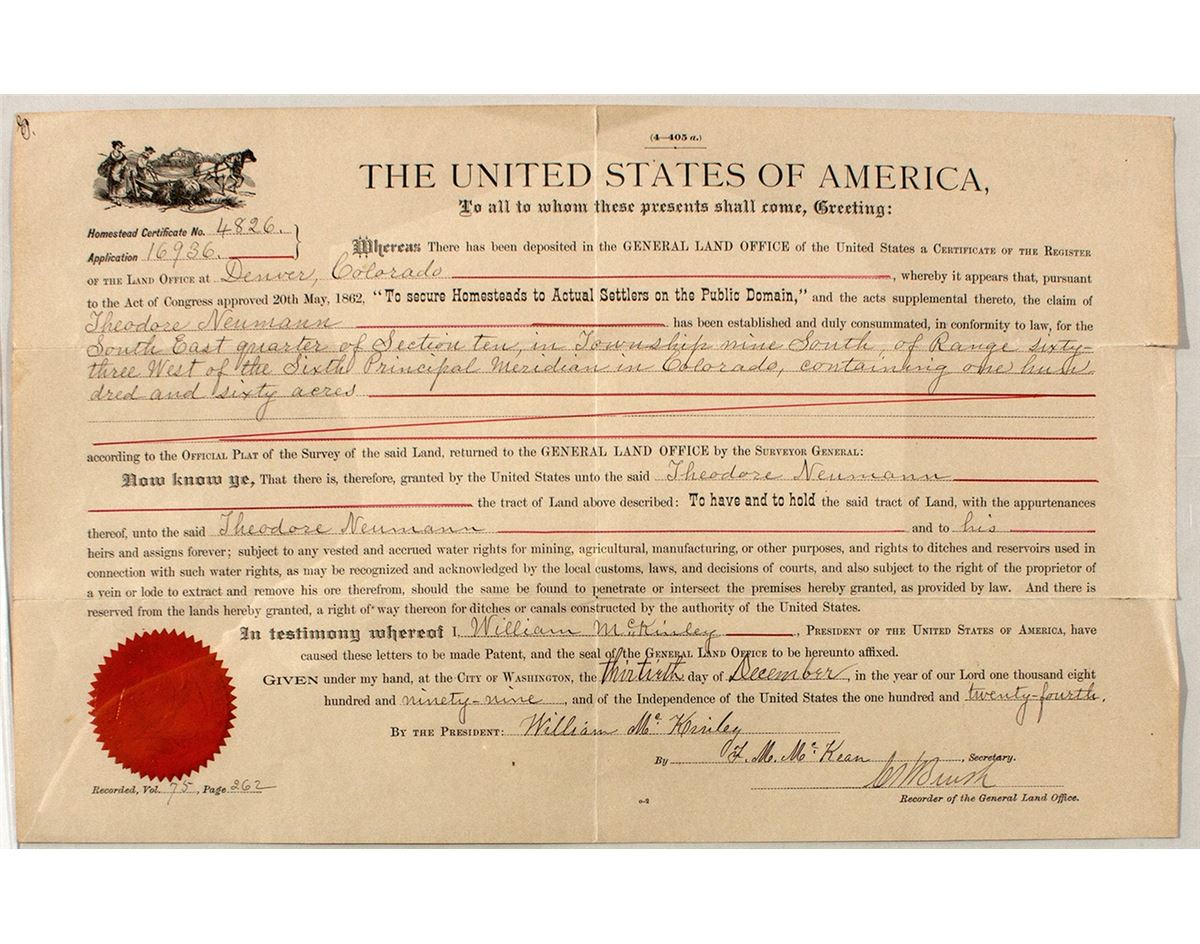 (4—405 a.)
THE UNITED STATES OF AMERICA,
To all to whom these presents shall come, Greeting:
Homestead Certificate No. 4826.
Application 16936.
Whereas There has been deposited in the GENERAL LAND OFFICE of the United States a CERTIFICATE OF THE REGISTER
OF THE LAND OFFICE AT Denver, Colorado, whereby it appears that, pursuant
to the Act of Congress approved 20th May, 1862, "To secure Homesteads to Actual Settlers on the Public Domain," and the acts supplemental thereto, the claim of
Theodore Neumann has been established and duly consummated, in conformity to law, for the
South East quarter of Section ten, in Township nine South, of Range sixty-
three West of the Sixth Principal Meridian in Colorado, containing one hun
dred and sixty acres
according to the OFFICIAL PLAT of the Survey of the said Land, returned to the GENERAL LAND OFFICE by the SURVEYOR GENERAL:
Now know ye, That there is, therefore, granted by the United States unto the said Theodore Neumann
the tract of Land above described: To have and to hold the said tract of Land, with the appurtenances
thereof, unto the said Theodore Neumann and to his
heirs and assigns forever; subject to any vested and accrued water rights for mining, agricultural, manufacturing, or other purposes, and rights to ditches and reservoirs used in
connection with such water rights, as may be recognized and acknowledged by the local customs, laws, and decisions of courts, and also subject to the right of the proprietor of
a vein or lode to extract and remove his ore therefrom, should the same be found to penetrate or intersect the premises hereby granted, as provided by law. And there is
reserved from the lands hereby granted, a right of way thereon for ditches or canals constructed by the authority of the United States.
In testimony whereof I, William McKinley, PRESIDENT OF THE UNITED STATES OF AMERICA, have
caused these letters to be made Patent, and the seal of the GENERAL LAND OFFICE to be hereunto affixed.
GIVEN under my hand, at the CITY OF WASHINGTON, the thirtieth day of December, in the year of our Lord one thousand eight
hundred and ninety-nine, and of the Independence of the United States the one hundred and twenty-fourth.
BY THE PRESIDENT: William McKinley
By F. M. McKean, Secretary.
Recorded, Vol. 75, Page 262
o-2
Recorder of the General Land Office.